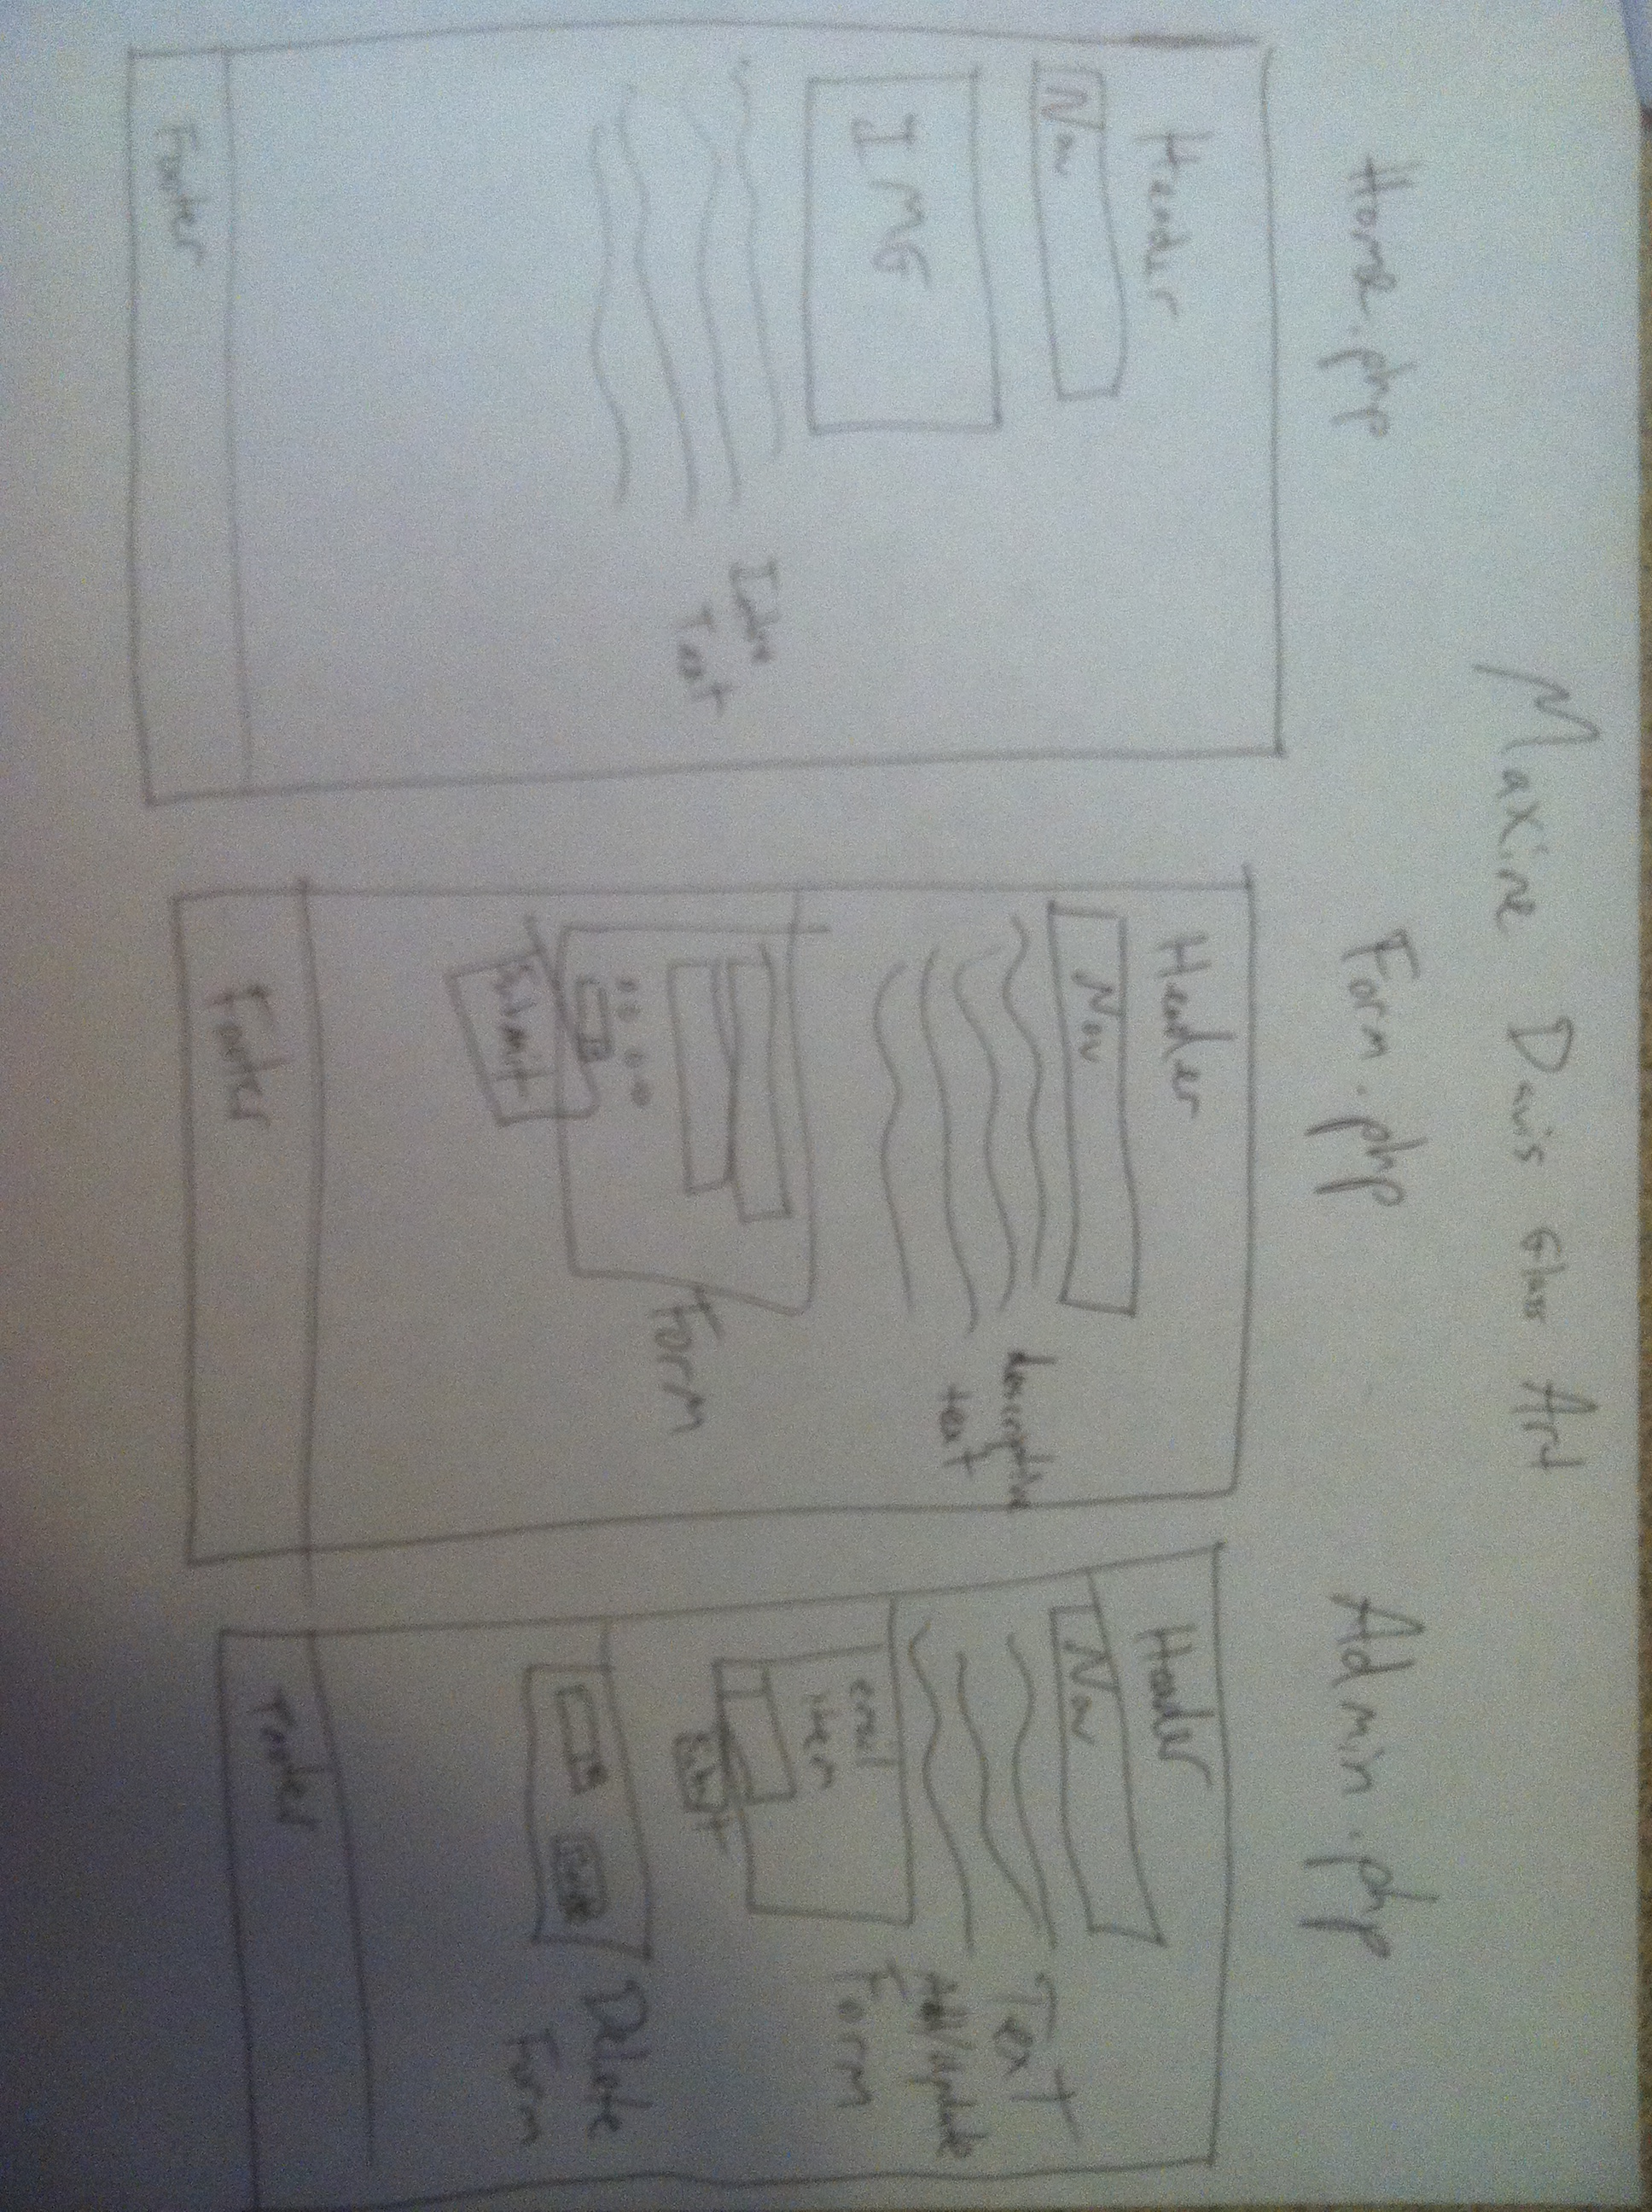 Maxine Davis Glass Art
Home.php
Header
Nav
IMG
Intro
Text
Footer
Form.php
Header
Nav
descriptive
text
Form
Submit
Footer
Admin.php
Header
Nav
Text
Add/update
Form
Delete
Form
Footer